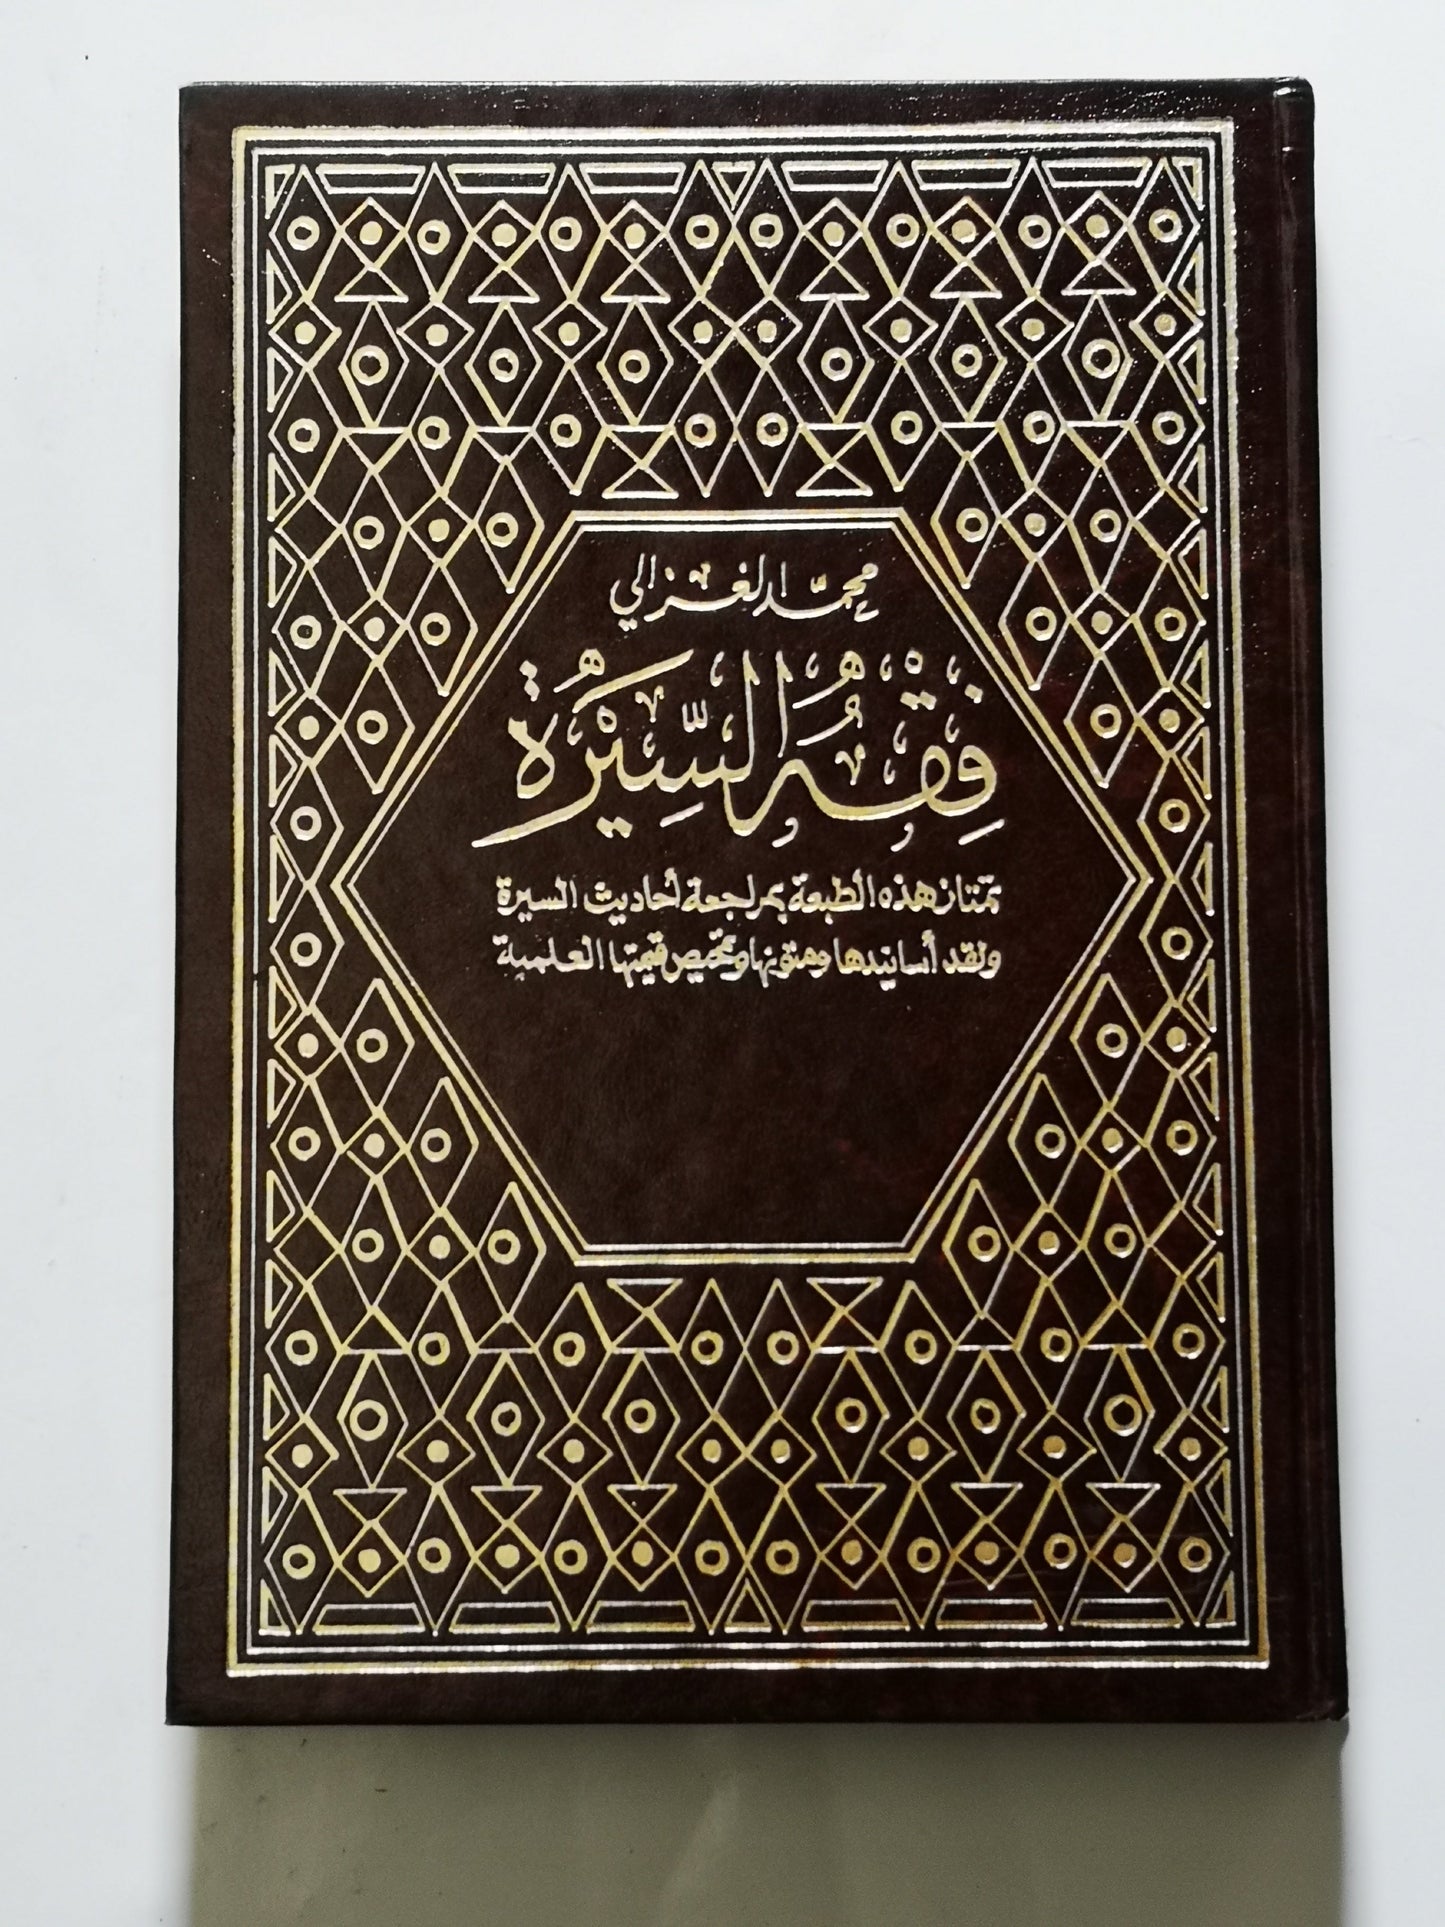 محمّد الغزالي
فِقْهُ السِّيرَة
تمتاز هذه الطبعة بمراجعة أحاديث السيرة
ونقد أسانيدها ومتونها وتمحيص قيمتها العلمية